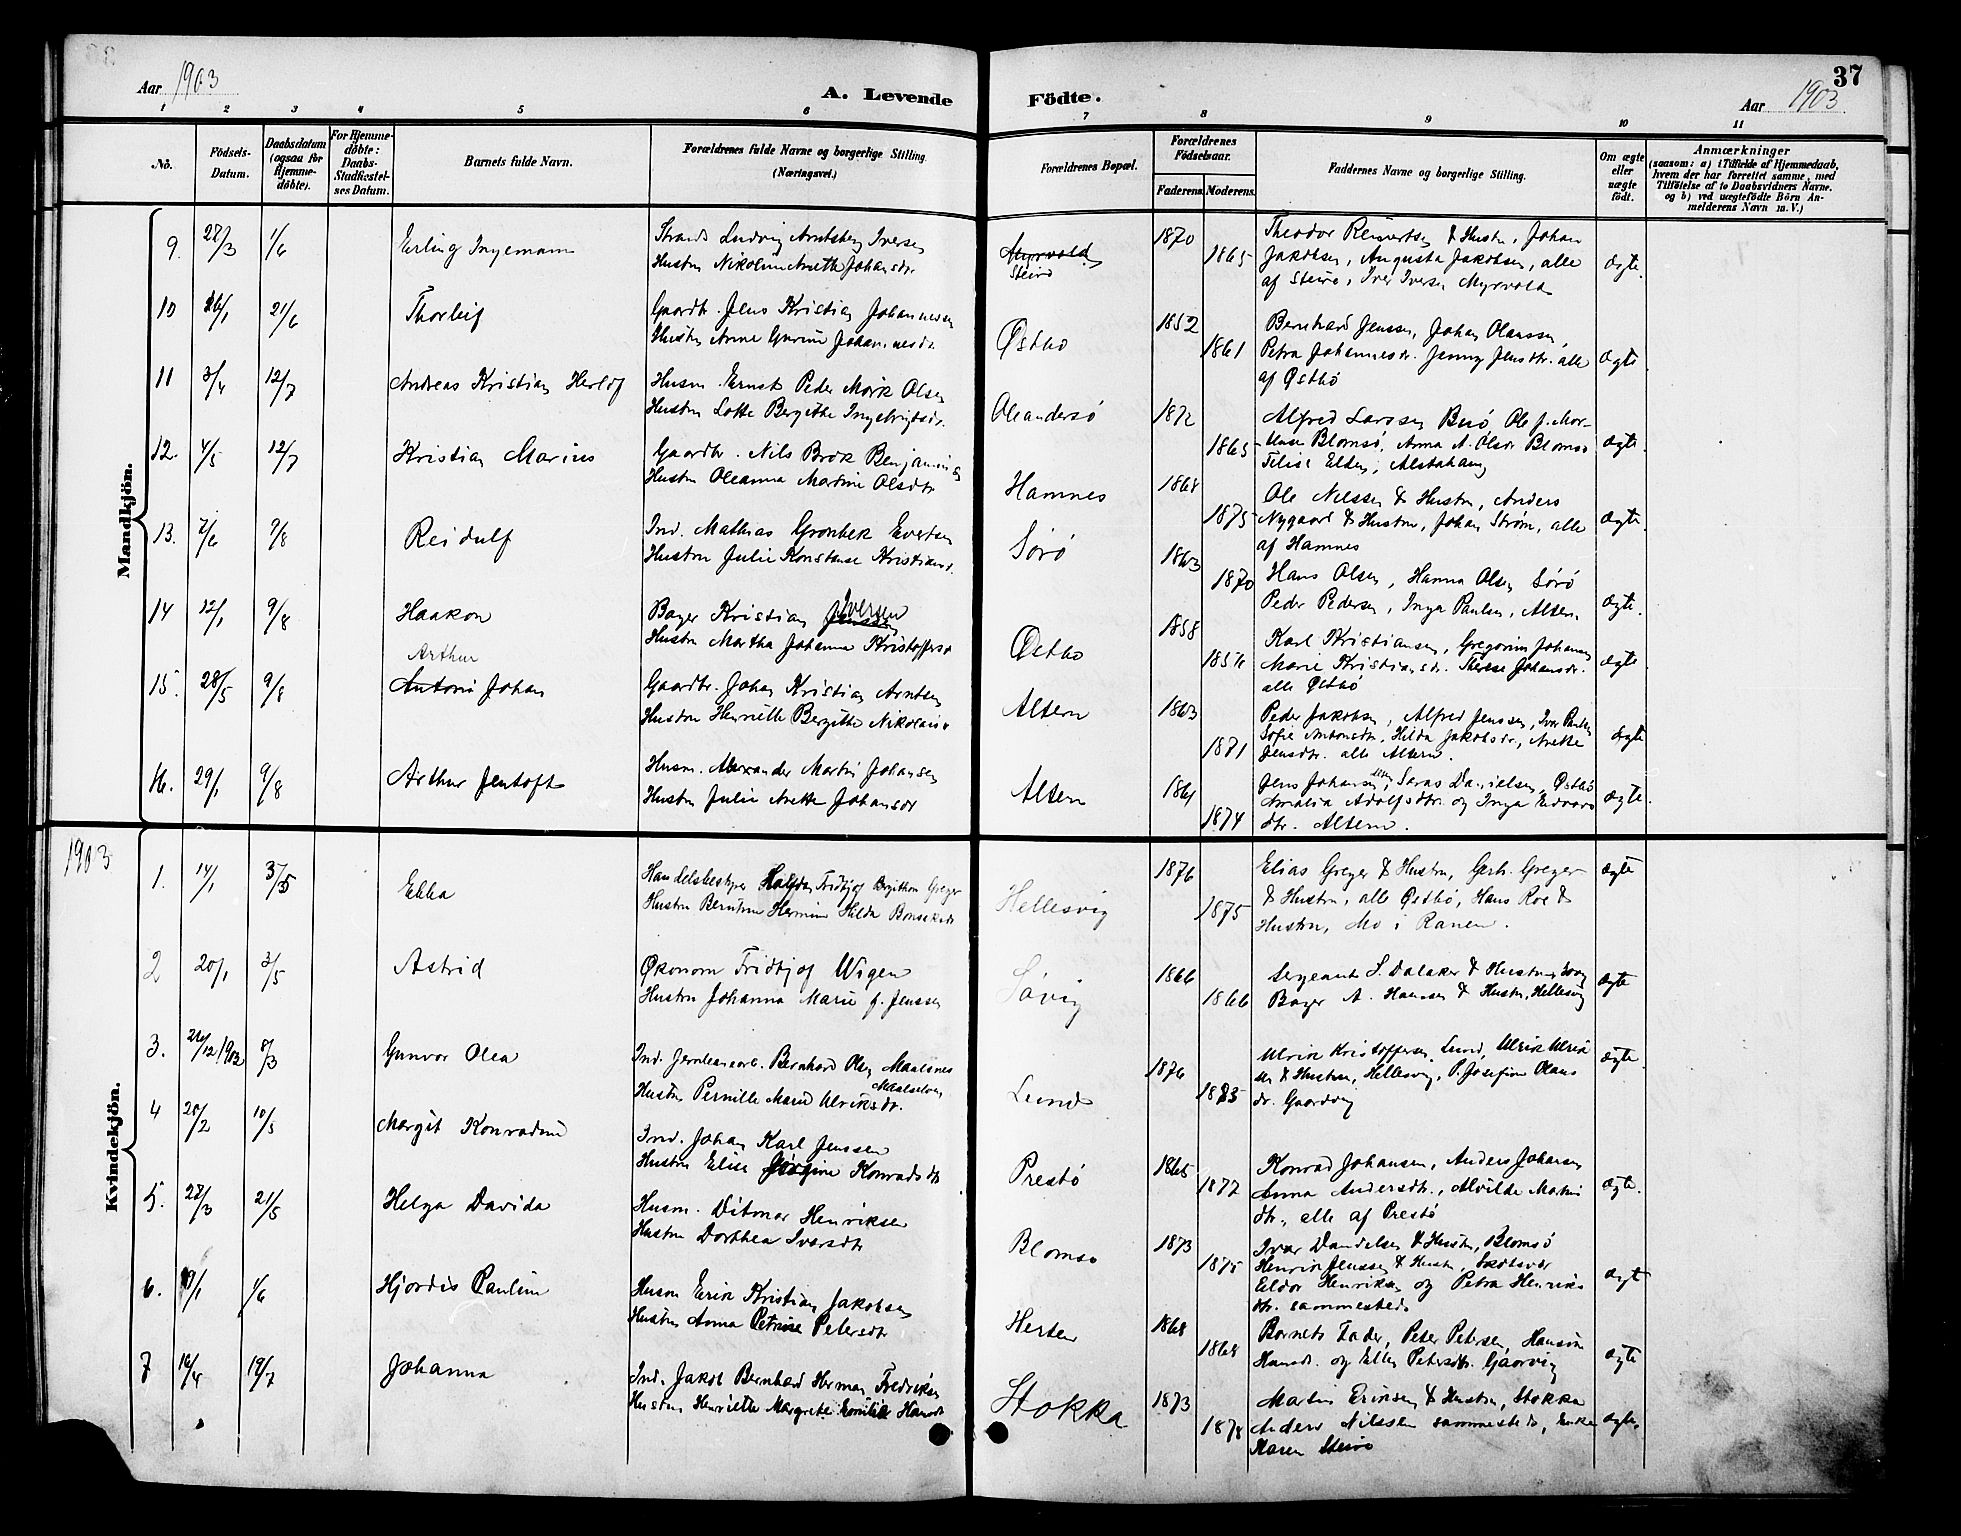 Aar 1903
A. Levende Födte.
37
Aar 1903
1 2 3 4 5 6 7 8 9 10 11
No.
Födsels-Datum.
Daabsdatum (ogsaa för Hjemme-döbte).
For Hjemme-döbte: Daabs-Stadfæstel-ses Datum.
Barnets fulde Navn.
Forældrenes fulde Navne og borgerlige Stilling.
(Næringsvei.)
Forældrenes Bopæl.
Forældrenes Födselsaar.
Faderens. Moderens.
Faddernes Navne og borgerlige Stilling.
Om ægte eller uægte födt.
Anmærkninger
(saasom: a) i Tilfælde af Hjemmedaab, hvem der har forrettet samme, med Tilföielse af to Daabsvidners Navne. og b) ved uægtefödte Börn An-melderens Navn m.V.)
Mandkjön.
9. 28/3 1/6 Erling Ingemann
Strands. Ludvig Arntsberg Iversen
Hustru Nikoline Anette Johansdr.
Myrvold
Steirö
1870 1865
Theodor Reinertsen & Hustru, Johan
Jakobsen, Augusta Jakobsen, alle
af Steirö, Iver Iversen Myrvold
ægte.
10 26/1 21/6 Thorleif
Gaardbr. Jens Kristian Johannesen
Hustru Anne Gurine Johannesdr.
Østbö
1852 1861
Bernhard Jenssen, Johan Olaussen,
Petra Johannesdr. Jenny Jensdtr. alle
af Østbö
ægte
11 3/4 12/7 Andreas Kristian Herlof
Husm. Ernst Peder Mørk Olsen
Hustru Lotte Bergitte Ingebrigtsdr.
Oleandersö
1872 1865
Alfred Larssen Buö, Ole J. Mor-
tense Blomsö, Anna A. Olsdr Blomsö
Elden, Alstahaug
ægte
12. 4/5 12/7 Kristian Marius
Gaardbr. Nils Brok Benjaminsen
Hustru Oleanna Martine Olsdtr
Hamnes
1868 1875
Ole Nilssen & Hustru, Anders
Nygaard & Hustru, Johan Strøm, alle
af Hamnes
ægte.
13. 7/6 9/8 Reidulf
Ind. Mathias Grønbek Evertsen
Hustru Julie Konstanse Kristiansd.
Sörö
1863 1870
Hans Olsen, Hanna Olsen Sörö
Peder Pedersen, Inga Paulsen, Altern.
ægte.
14 12/1 9/8 Haakon
Bager Kristian Jenssen Iversen
Hustru Martha Johanna Kristoffersd
Østbö
1858 1856
Karl Kristiansen, Gregorius Johansen
Marie Kristiansdr. Therese Johansdr.
alle Østbö
ægte
15. 28/5 9/8 Arthur
Antoni Johan
Gaardbr. Johan Kristian Arntsen
Hustru Henriette Bergitte Nikolaisd
Altern
1863 1871
Peder Jakobsen, Alfred Jenssen, Ivar Paulsen
Sofie Antonsdr, Hilda Jakobsdr, Anette
Jensdtr. alle Altern.
ægte
16. 29/1 9/8 Arthur Jentoft
Husm. Alexander Martin Johansen
Hustru Julie Anette Johansdr
Altern
1861 1874
Jens Johansen, Saras Danielsen, Østbö
Amalia Adolfsdtr. og Inga Edvards
dtr. Altern.
ægte.
1903
Kvindekjön.
1. 14/1 3/5 Ebba
Handelsbestyrer Halfdan Fridtjof Greger
Hustru Hermine Hilda
Hellesvig
1876 1875
Elias Greger & Hustru, Gerh. Greger
& Hustru, alle Østbö, Hans Roe &
Hustru, Mo i Ranen.
ægte
2 20/1 3/5 Astrid
Økonom Fridtjof Wigen
Hustru Johanna Marie f. Jenssen
Søvig
1866 1866
Sergeant S. Dalaker & Hustru, Søvig
Bager A. Hansen & Hustru, Hellesvig
ægte
3. 24/12 1902 8/3 Gunvor Olea
Ind. Jernbanearb. Bernhard Olsen Maalsnes
Maalselven
Hustru Pernille Marie Ulriksdr.
Lund
1876 1875
Ulrik Kristoffersen Lund, Ulrik Ulrik
sen & Hustru, Hellesvig, P. Josefine Olaus
dr. Gaardvig
ægte
4 20/2 10/5 Margit Konradine
Ind. Johan Karl Jenssen
Hustru Elise Jørgine Konradsdtr
Prestö
1865 1872
Konrad Johansen, Anders Johansen
Anna Andersdtr., Alvilde Martins
dtr., alle af Prestö
ægte.
5. 28/3 21/5 Helga Davida
Husm. Ditmar Henriksen
Hustru Dorthea Iversdtr
Blomsö
1873 1875
Ivar Danielsen & Hustru, Blomsö
Henrik Jenssen & Hustru, Skotsvær
Eldor Henriksen og Petra Henriks
dtr. sammesteds
ægte
6. 19/1 1/6 Hjørdis Pauline
Husm Erik Kristian Jakobsen
Hustru Anna Petrine Petersdtr
Herten
1868 1868
Barnets Fader, Peter Petersen, Hansine
Hansdr. og Ellen Petersdtr. Gaarvig
ægte
7 16/4 19/7 Johanna
Ind. Jakob Bernhard Herman Fredriksen
Hustru Henriette Margrete Emilie Hansdtr
Stokka
1873 1878
Martin Eriksen & Hustru, Stokka
Anders Nilssen sammesteds, Enke
Karen Steirö
ægte.